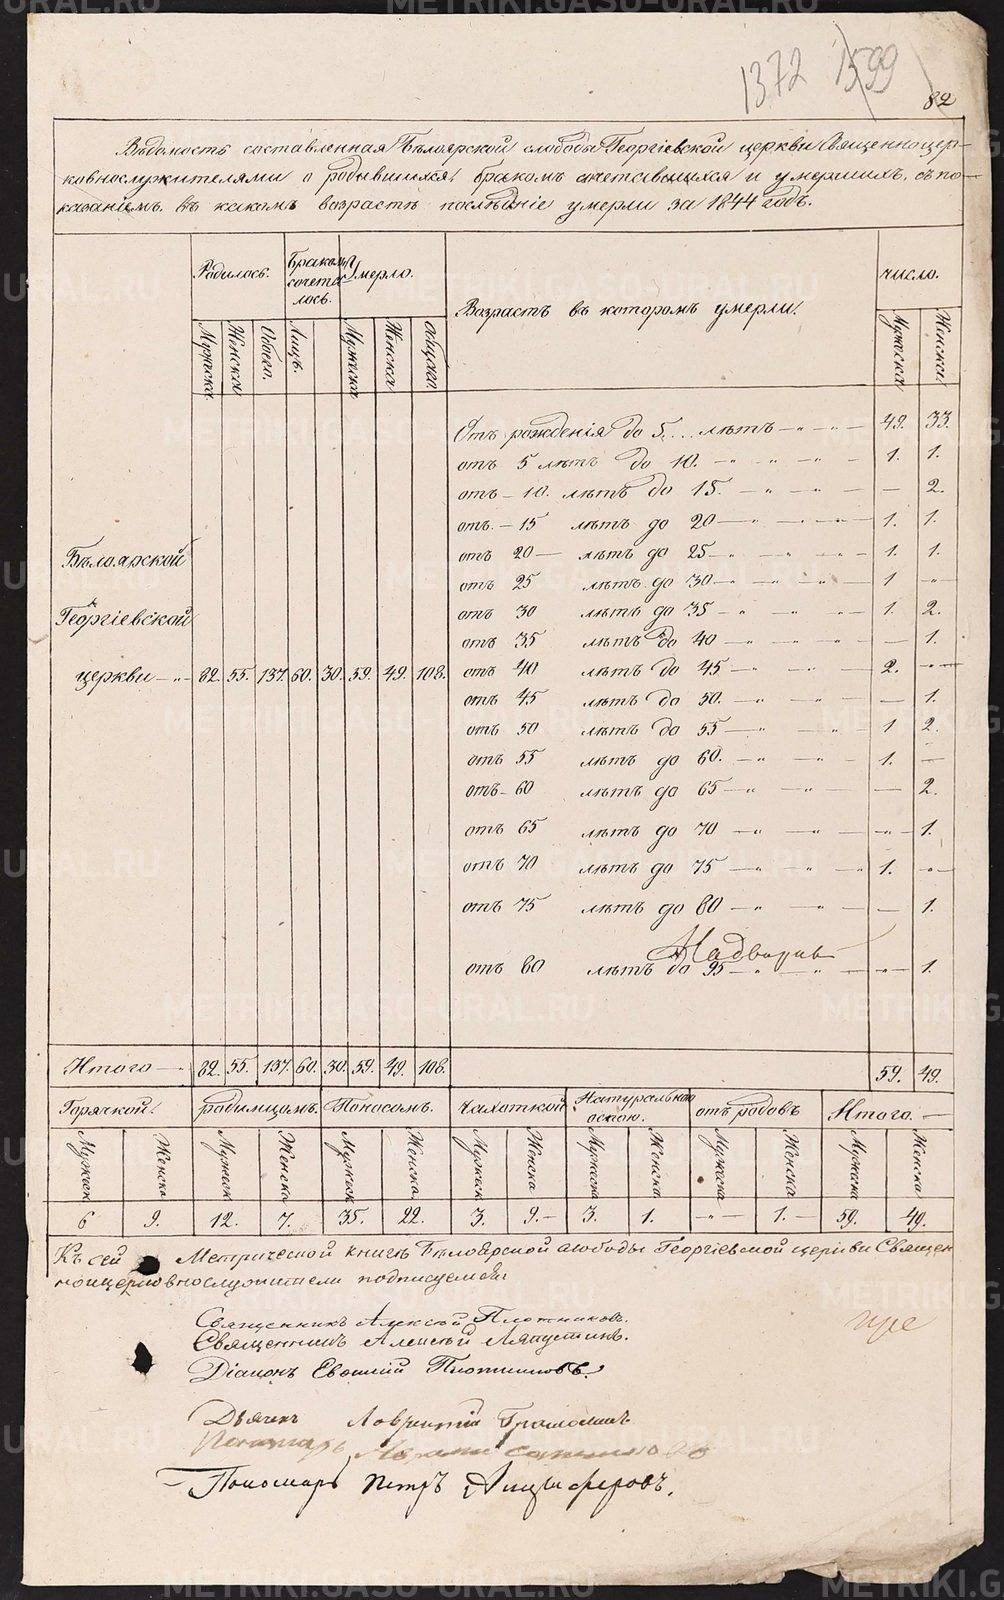 1372 1599
82
Вѣдомость составленная Бѣлоярской слободы Георгіевской церкви Священноцер-
ковнослужителями о родившихся, бракомъ сочетавшихся и умершихъ, съ по-
казаніемъ въ какомъ возрастѣ послѣдніе умерли за 1844 годъ.
Родилось. Бракомъ сочета- лось. Умерло. Возрастъ въ которомъ умерли. число.
Мужеска Женска Обоего. Лицъ. Мужеска Женска общаго. Мужеска Женска.
Отъ рожденія до 5.... лѣтъ 49. 33.
отъ 5 лѣтъ до 10. 1. 1.
отъ 10. лѣтъ до 15. — 2.
отъ 15 лѣтъ до 20 1. 1.
отъ 20 лѣтъ до 25 1. 1.
отъ 25 лѣтъ до 30 1 —
отъ 30 лѣтъ до 35 1. 2.
отъ 35 лѣтъ до 40 — 1.
отъ 40 лѣтъ до 45 2. —
отъ 45 лѣтъ до 50. — 1.
отъ 50 лѣтъ до 55 1 2.
отъ 55 лѣтъ до 60. 1. —
отъ 60 лѣтъ до 65 — 2.
отъ 65 лѣтъ до 70 — 1.
отъ 70 лѣтъ до 75 1. —
отъ 75 лѣтъ до 80 — 1.
отъ 80 лѣтъ до 95 — 1.
Бѣлоярской
Георгіевской
церкви 82. 55. 137. 60. 30. 59. 49. 108.
Итого 82. 55. 137. 60. 30. 59. 49. 108. 59. 49.
Горячкой. родимцомъ. Поносомъ. Чахоткой Натуральною оспою. отъ родовъ Итого.
Мужеск Женска Мужеск Женска Мужеск Женска. Мужеск Женска Мужеска Женска. Мужеска Женска. Мужеска Женска
6 9. 12. 7. 35. 22. 3. 9. 3. 1. — 1. 59. 49.
Къ сей Метрической книгѣ Бѣлоярской слободы Георгіевской церкви Священ
ноцерковнослужители подписуемся
Священникъ Алексѣй Плотниковъ.
Священникъ Алексѣй Ляпустинъ.
Діаконъ Евѳимій Плотниковъ.
Дьячек Лаврентій
Пономарь
Пономарь Петръ Анциферовъ.
METRIKI.GASO-URAL.RU